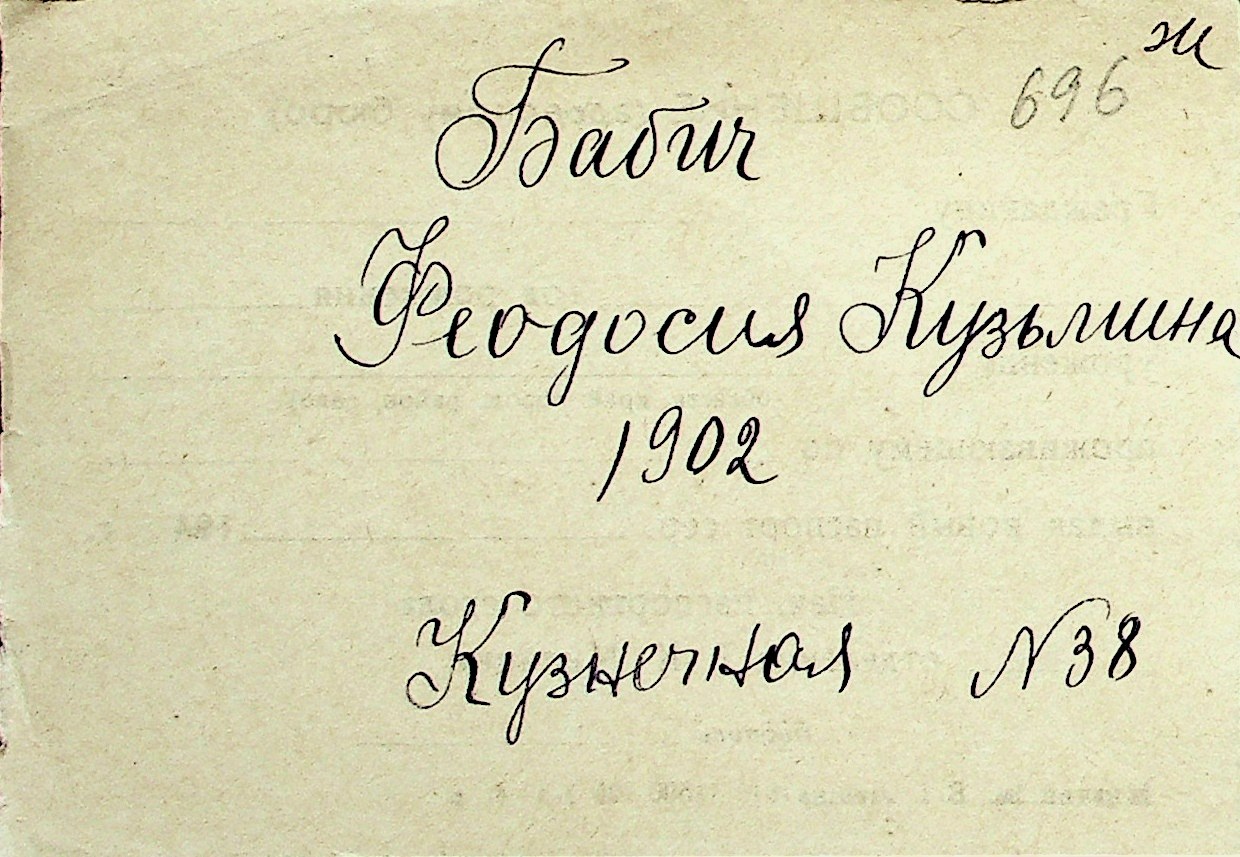 ж
696
Бабич
Феодосия Кузьмина
1902
Кузнечная №38